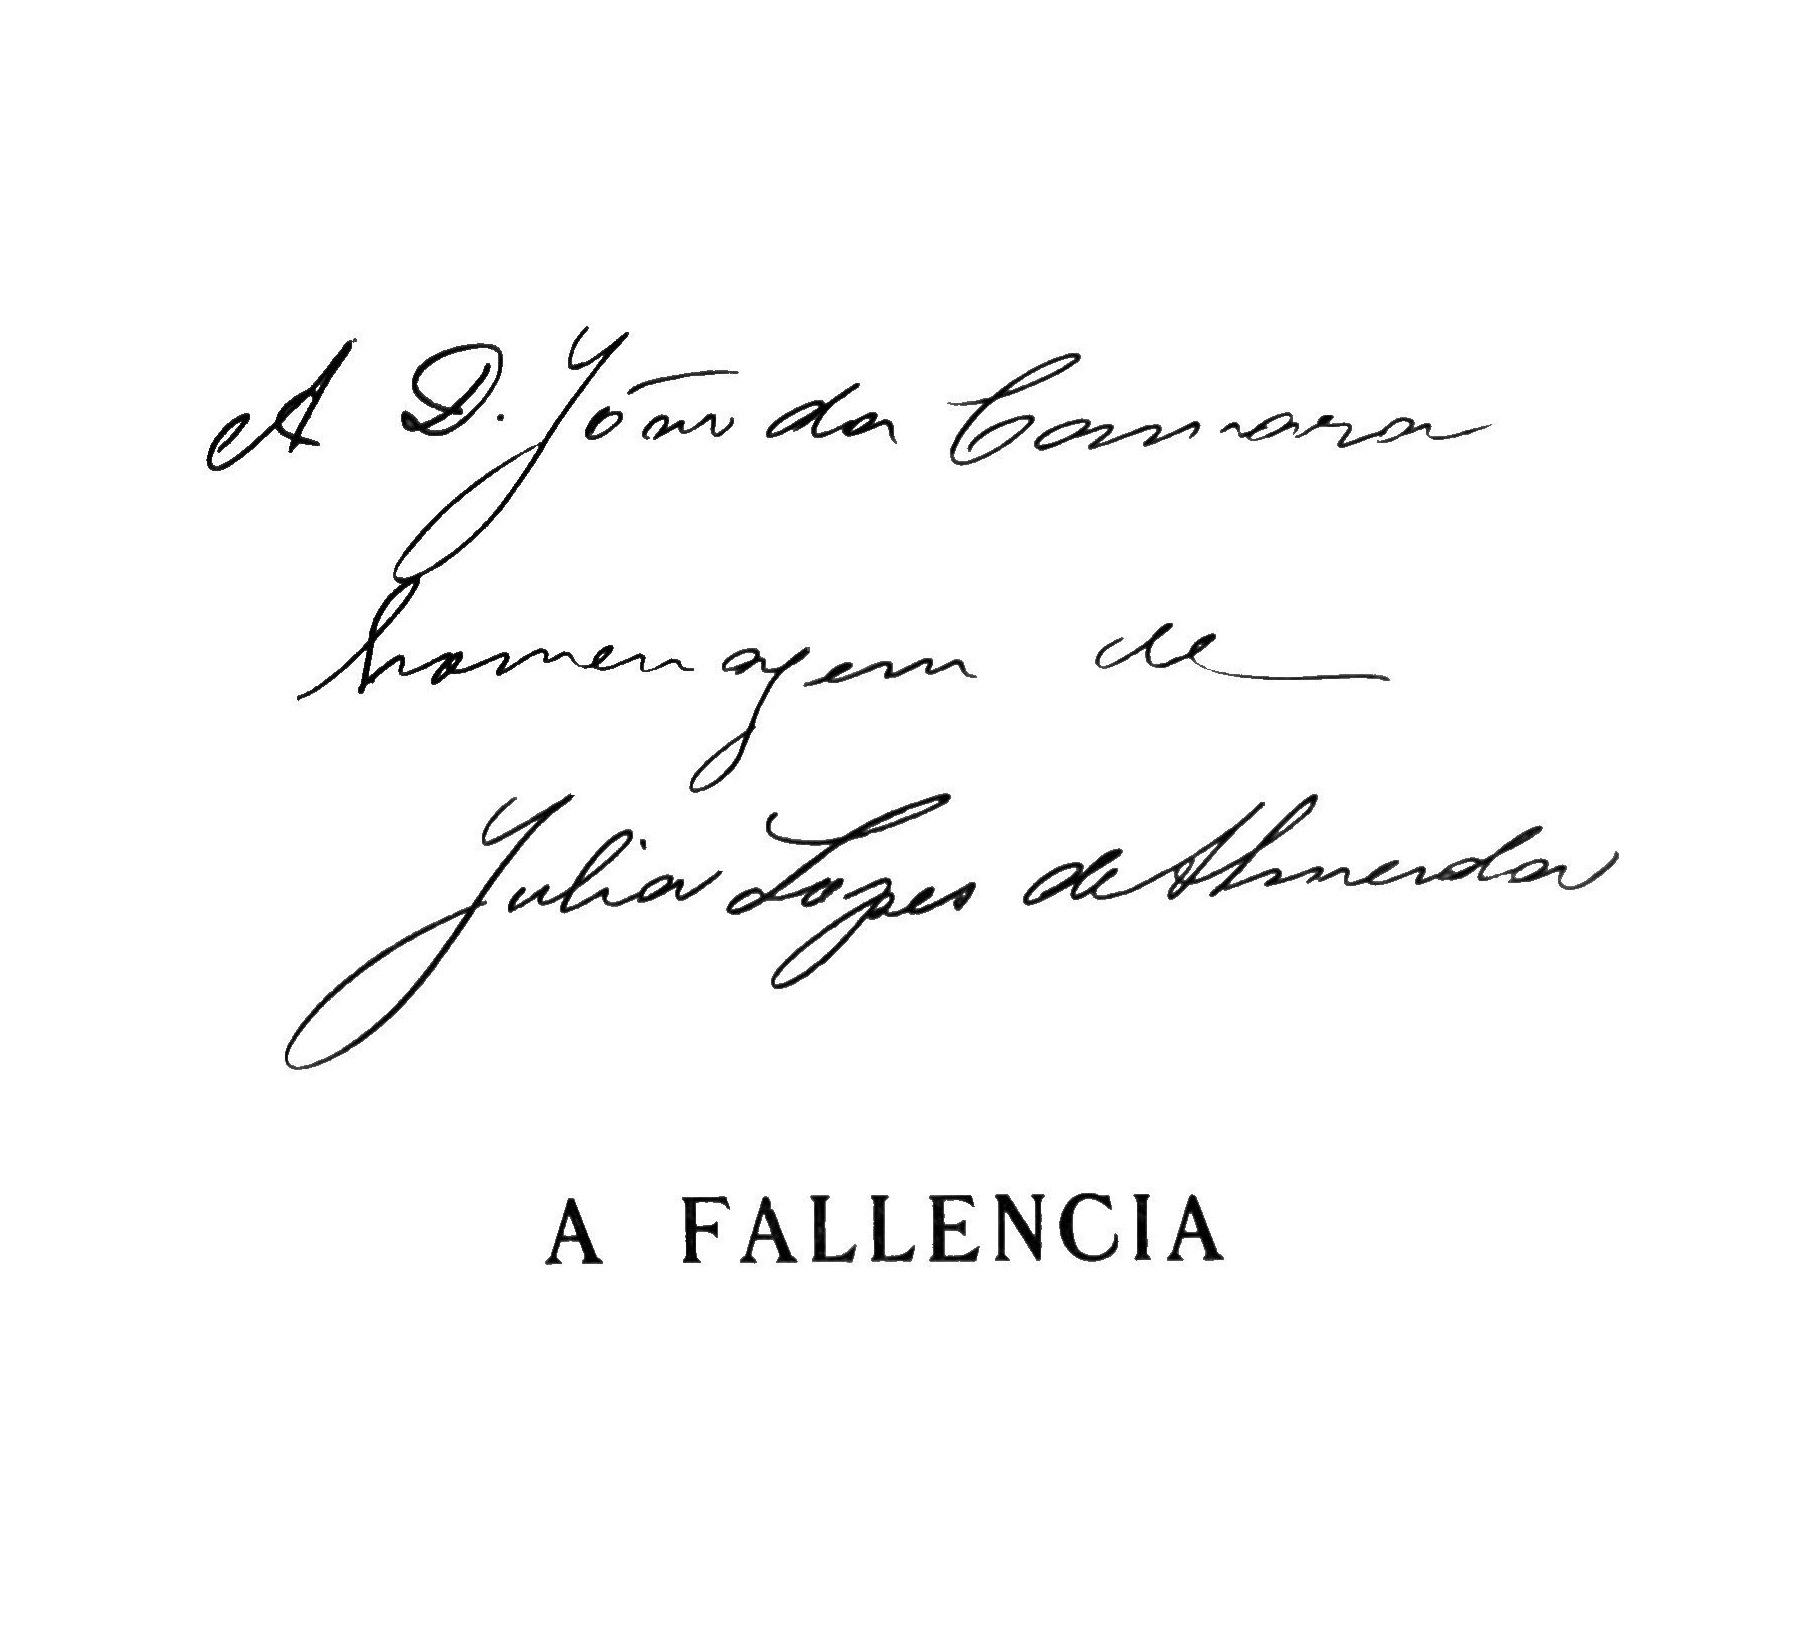 A D. João da Camara
homenagem de
Julia Lopes de Almeida
A FALLENCIA